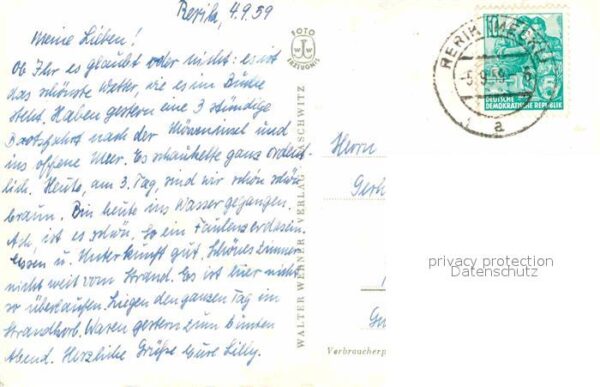 Rerik, 4.9.59
Meine Lieben!
Ob Ihr es glaubt oder nicht: es ist
das schönste Wetter, wie es im Buche
steht. Haben gestern eine 3 stündige
Bootsfahrt nach der Möweninsel und
ins offene Meer. Es schaukelte ganz ordent-
lich. Heute, am 3. Tag, sind wir schön schön
braun. Bin heute ins Wasser gegangen.
Ach, ist es schön. So ein Faulenzerdasein.
Essen u. Unterkunft gut. Schönes Zimmer
nicht weit vom Strand. Es ist hier nicht
so überlaufen. Liegen den ganzen Tag im
Strandkorb. Waren gestern zum bunten
Abend. Herzliche Grüße Eure Lilly.
FOTO
ERZEUGNIS
WALTER WERNER VERLAG
Herrn
Gerh
Verbraucherp
RERIK (MECKL)
-5.9.59-
a
DEUTSCHE
DEMOKRATISCHE REPUBLIK
privacy protection
Datenschutz